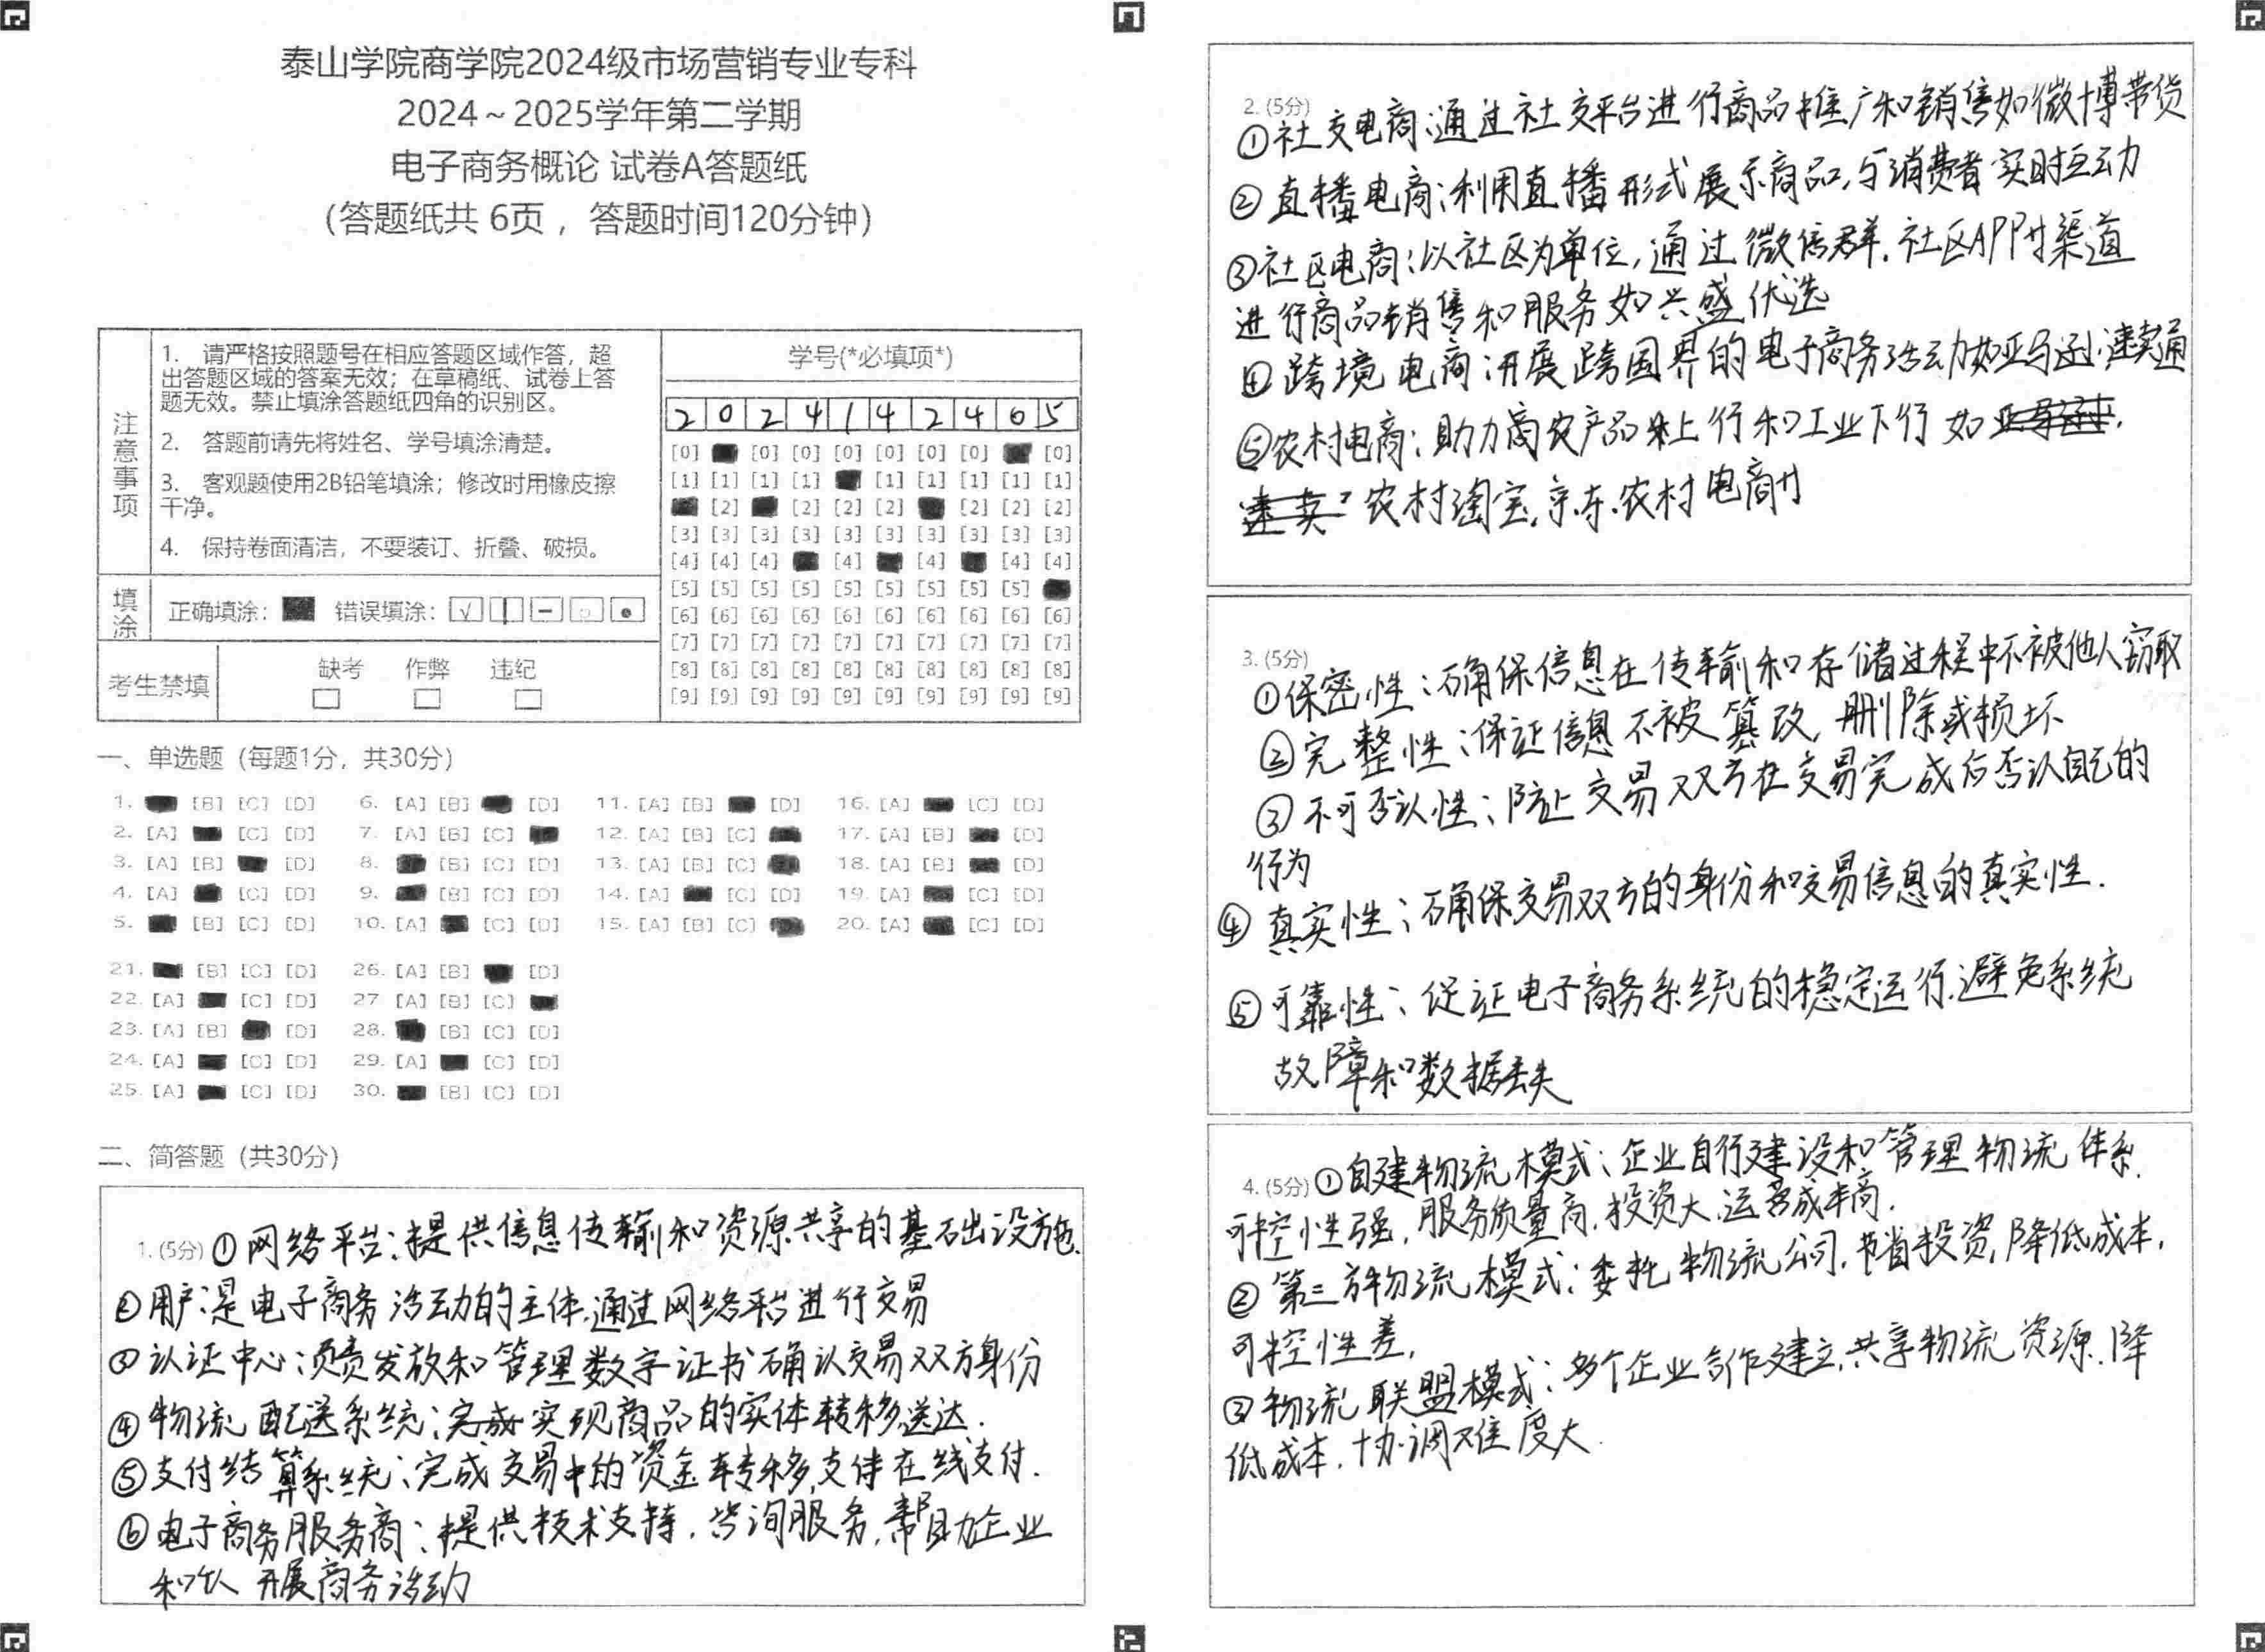 泰山学院商学院2024级市场营销专业专科
2024～2025学年第二学期
电子商务概论 试卷A答题纸
（答题纸共 6页，答题时间120分钟）
注意事项
1. 请严格按照题号在相应答题区域作答，超
出答题区域的答案无效；在草稿纸、试卷上答
题无效。禁止填涂答题纸四角的识别区。
2. 答题前请先将姓名、学号填涂清楚。
3. 客观题使用2B铅笔填涂；修改时用橡皮擦
干净。
4. 保持卷面清洁，不要装订、折叠、破损。
填涂 正确填涂： 错误填涂：
考生禁填 缺考 作弊 违纪
学号(*必填项*)
2 0 2 4 1 4 2 4 0 5
[0] [0] [0] [0] [0] [0] [0] [0]
[1] [1] [1] [1] [1] [1] [1] [1] [1]
[2] [2] [2] [2] [2] [2] [2]
[3] [3] [3] [3] [3] [3] [3] [3] [3] [3]
[4] [4] [4] [4] [4] [4] [4]
[5] [5] [5] [5] [5] [5] [5] [5] [5]
[6] [6] [6] [6] [6] [6] [6] [6] [6] [6]
[7] [7] [7] [7] [7] [7] [7] [7] [7] [7]
[8] [8] [8] [8] [8] [8] [8] [8] [8] [8]
[9] [9] [9] [9] [9] [9] [9] [9] [9] [9]
一、单选题（每题1分，共30分）
1. [B] [C] [D] 6. [A] [B] [D] 11. [A] [B] [D] 16. [A] [C] [D]
2. [A] [C] [D] 7. [A] [B] [C] 12. [A] [B] [C] 17. [A] [B] [D]
3. [A] [B] [D] 8. [B] [C] [D] 13. [A] [B] [C] 18. [A] [B] [D]
4. [A] [C] [D] 9. [B] [C] [D] 14. [A] [C] [D] 19. [A] [C] [D]
5. [B] [C] [D] 10. [A] [C] [D] 15. [A] [B] [C] 20. [A] [C] [D]
21. [B] [C] [D] 26. [A] [B] [D]
22. [A] [C] [D] 27 [A] [B] [C]
23. [A] [B] [D] 28. [B] [C] [D]
24. [A] [C] [D] 29. [A] [C] [D]
25. [A] [C] [D] 30. [B] [C] [D]
二、简答题（共30分）
1. (5分) ①网络平台：提供信息传输和资源共享的基础设施.
②用户：是电子商务活动的主体,通过网络平台进行交易
③认证中心：负责发放和管理数字证书确认交易双方身份
④物流配送系统：完成实现商品的实体转移,送达.
⑤支付结算系统：完成交易中的资金转移,支付在线支付.
⑥电子商务服务商：提供技术支持, 咨询服务,帮助企业
和个人开展商务活动
2. (5分)
①社交电商：通过社交平台进行商品推广和销售如微博带货
②直播电商：利用直播形式展示商品,与消费者实时互动
③社区电商：以社区为单位,通过微信群.社区APP等渠道
进行商品销售和服务如兴盛优选
④跨境电商：开展跨国界的电子商务活动如亚马逊.速卖通
⑤农村电商：助力商农产品上行和工业下行 如亚马逊.
速卖 农村淘宝.京东.农村电商等
3. (5分)
①保密性：确保信息在传输和存储过程中不被他人窃取
②完整性：保证信息不被篡改, 删除或损坏
③不可否认性：防止交易双方在交易完成后否认自己的
行为
④真实性：确保交易双方的身份和交易信息的真实性.
⑤可靠性：保证电子商务系统的稳定运行.避免系统
故障和数据丢失
4. (5分) ①自建物流模式：企业自行建设和管理物流体系.
可控性强, 服务质量高, 投资大,运营成本高.
②第三方物流模式：委托物流公司, 节省投资,降低成本,
可控性差,
③物流联盟模式：多个企业合作建立,共享物流资源.降
低成本. 协调难度大.